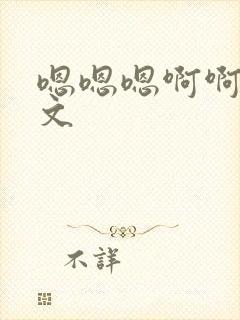 嗯嗯嗯啊啊
文
不详